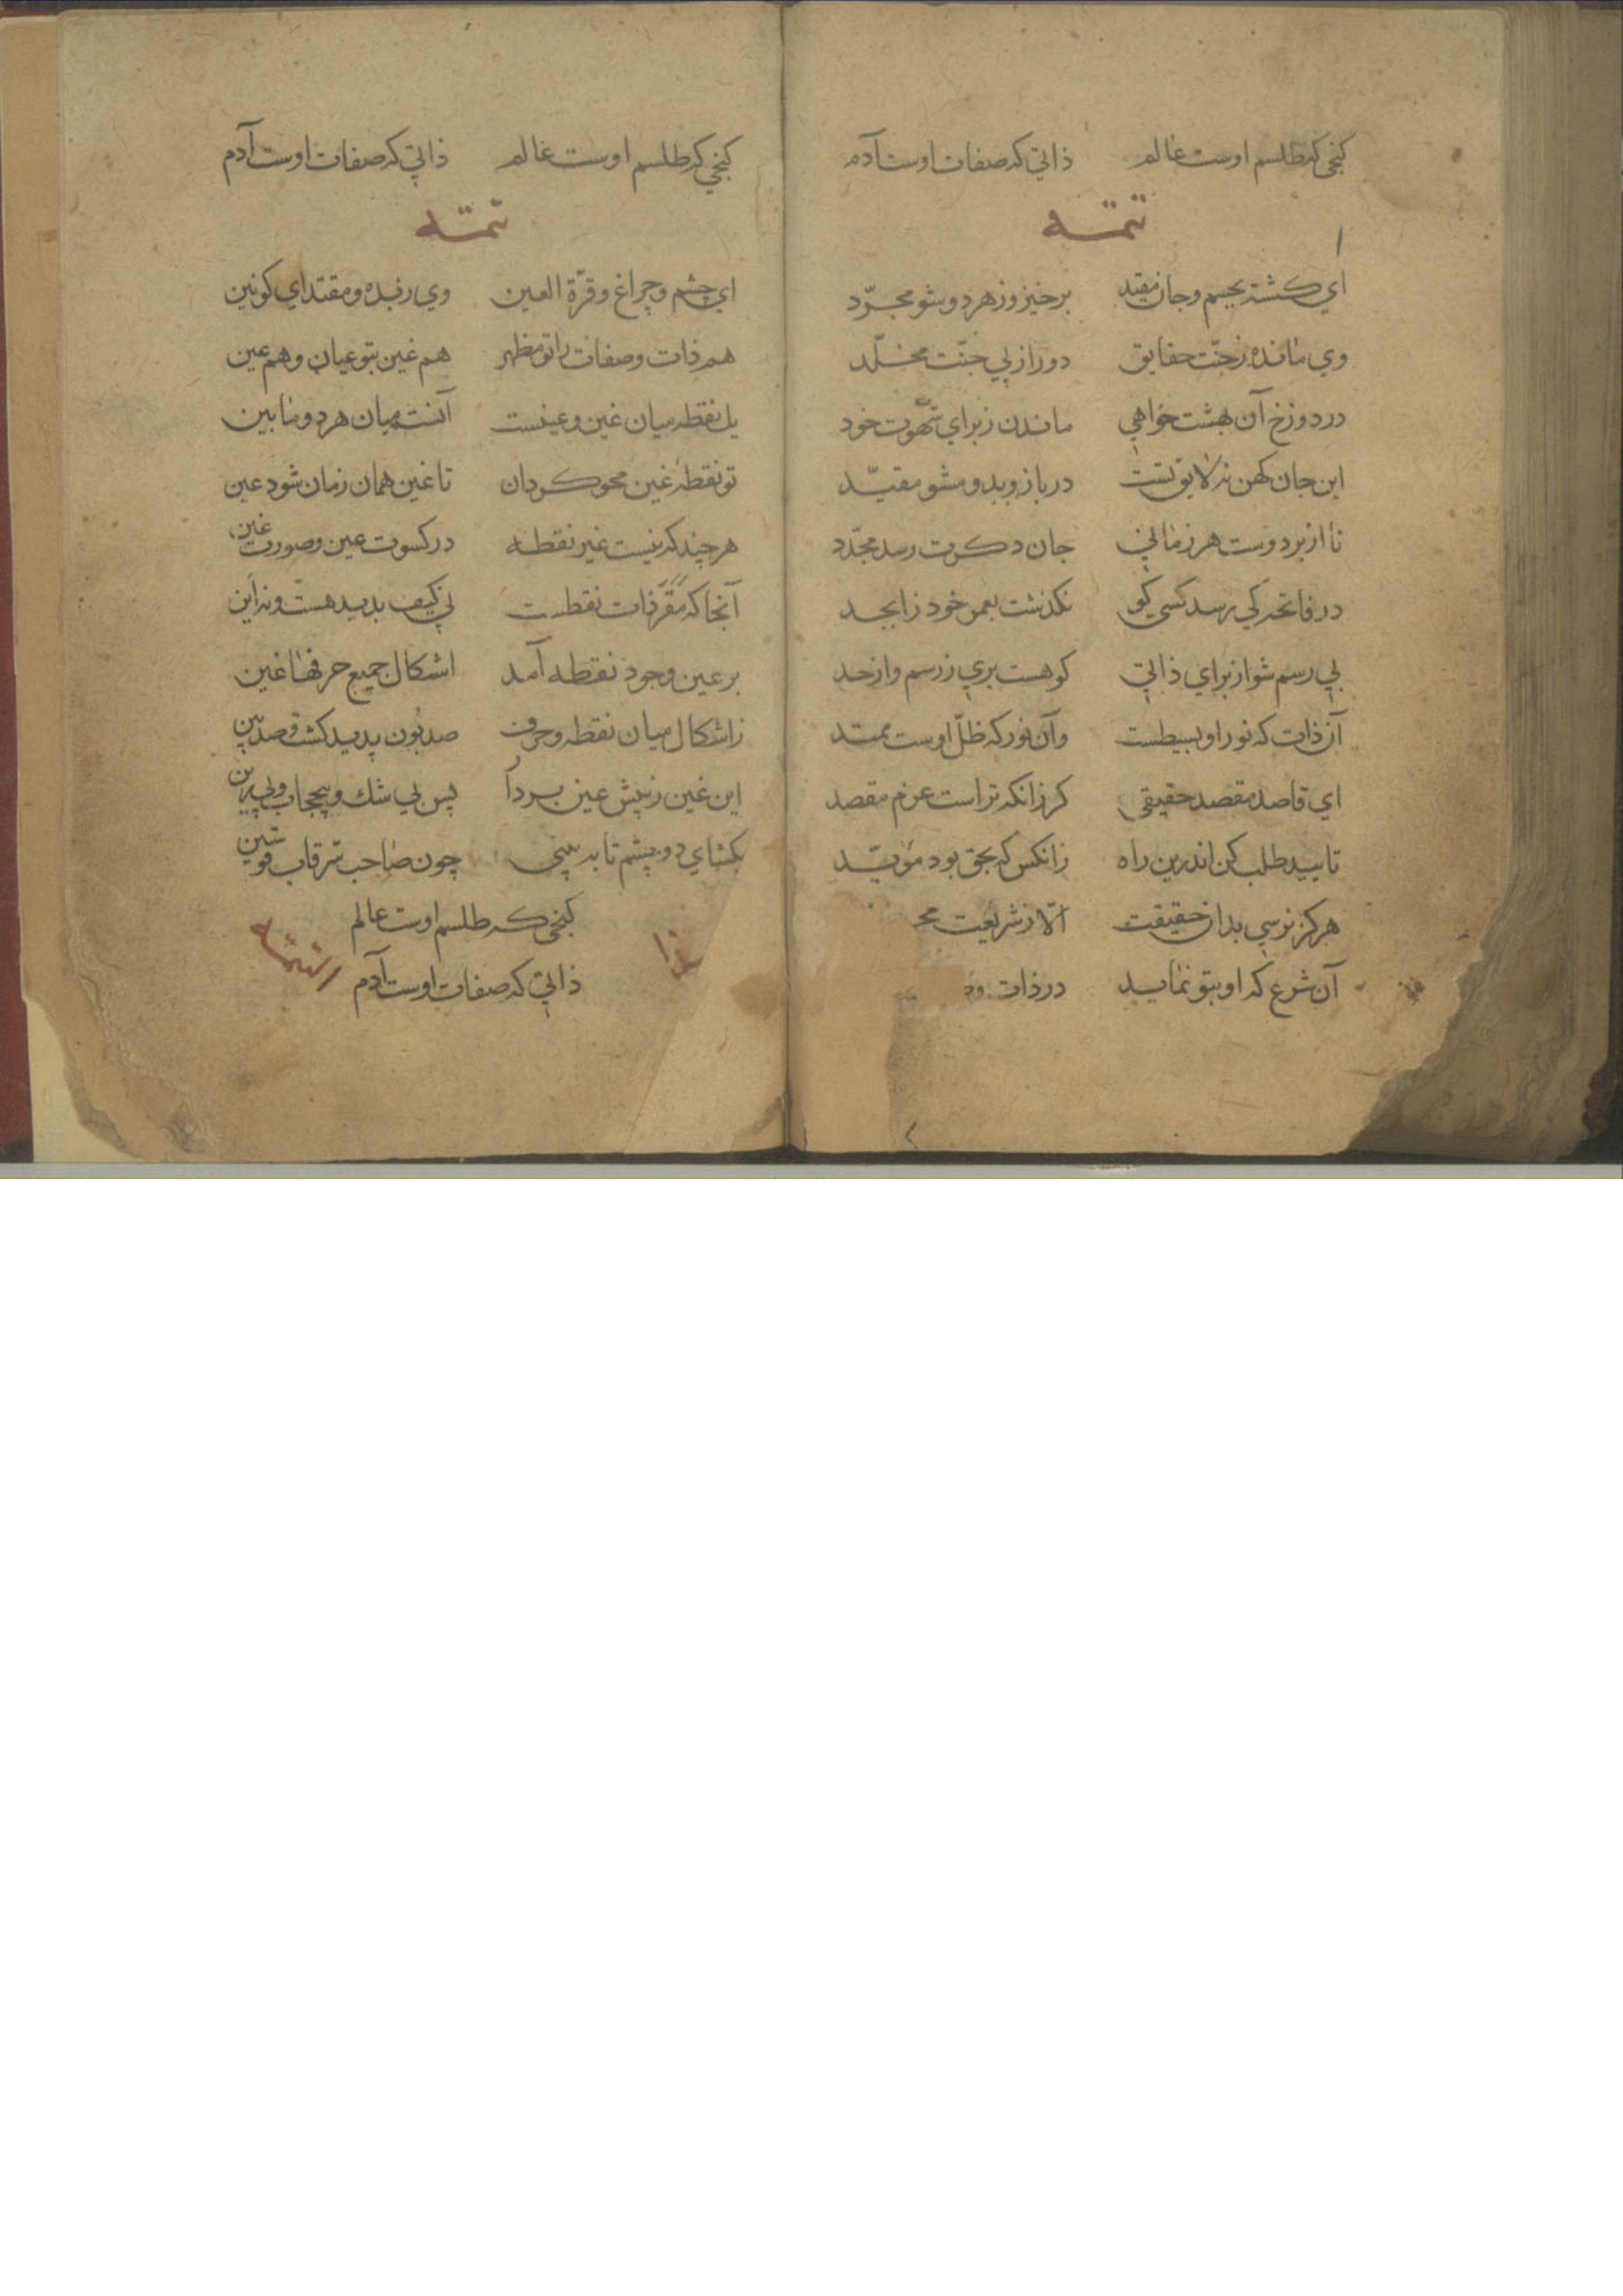 کنجی که طلسم اوست عالم ذاتی که صفات اوست آدم
تتمه
ای کشته بجسم و جان مقید برخیز وز هر دو شو مجرّد
وی مانده ز جنّت حقایق دور از پی جنّت مخلّد
در دوزخ آن بهشت خواهی ماندن ز برای شهوت خود
این جان کهن نه لایق تست در باز و بدو مشو مقیّد
تا از بر دوست هر زمانی جان دکرت رسد مجدّد
در فاتحه کی رسد کسی کو نکذشت بعمر خود ز ابجد
بی رسم شو از برای ذاتی کو هست بری ز رسم و از حد
آن ذات که نور او بسیطست وآن نور که ظلّ اوست ممتد
ای قاصد مقصد حقیقی کر زانکه تراست عزم مقصد
تایید طلب کن اندرین راه زانکس که بحق بود مؤیّد
هرکز نرسی بدان حقیقت الّا ز شریعت
آن شرع که او بتو نماید در ذات
کنجی که طلسم اوست عالم ذاتی که صفات اوست آدم
تتمه
ای چشم و چراغ و قرّة العین وی زبده و مقتدای کونین
هم ذات و صفات را تو مظهر هم غین بتو عیان و هم عین
یک نقطه میان غین و عینست آنست میان هر دو مابین
تو نقطهٔ غین محو کردان تا غین همان زمان شود عین
هر چند که نیست غیر نقطه در کسوت عین و صورت غین
آنجا که مقرّ ذات نقطست نی کیف بدید هست و نه این
بر عین وجود نقطه آمد اشکال جمیع حرفها غین
ز اشکال میان نقطه و حرف صد بُون پدید کشت و صد بین
این غین ز پیش عین بردار پس بی شک و بی حجاب و بی رین
بکشای دو چشم تا به بینی چون صاحب سرّ قاب قوسین
کنجی که طلسم اوست عالم
ذاتی که صفات اوست آدم